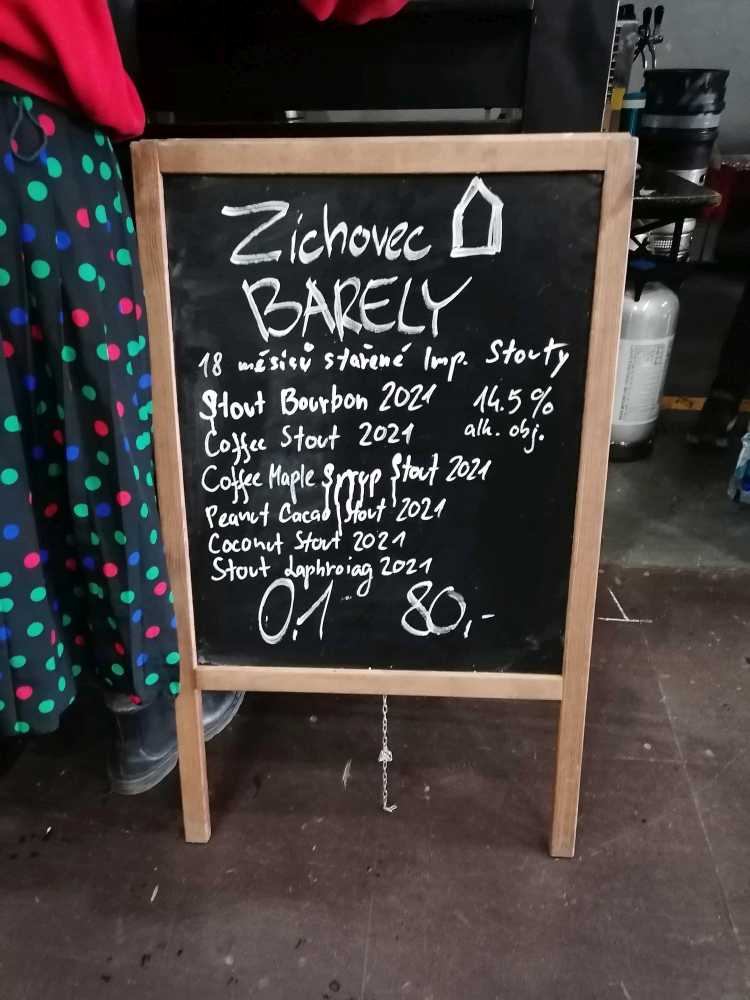 Zichovec
BARELY
18 měsíců stařené Imp. Stouty
Stout Bourbon 2021 14.5%
Coffee Stout 2021 alk. obj.
Coffee Maple Syrup Stout 2021
Peanut Cacao Stout 2021
Coconut Stout 2021
Stout Laphroiag 2021
0.1 80,-